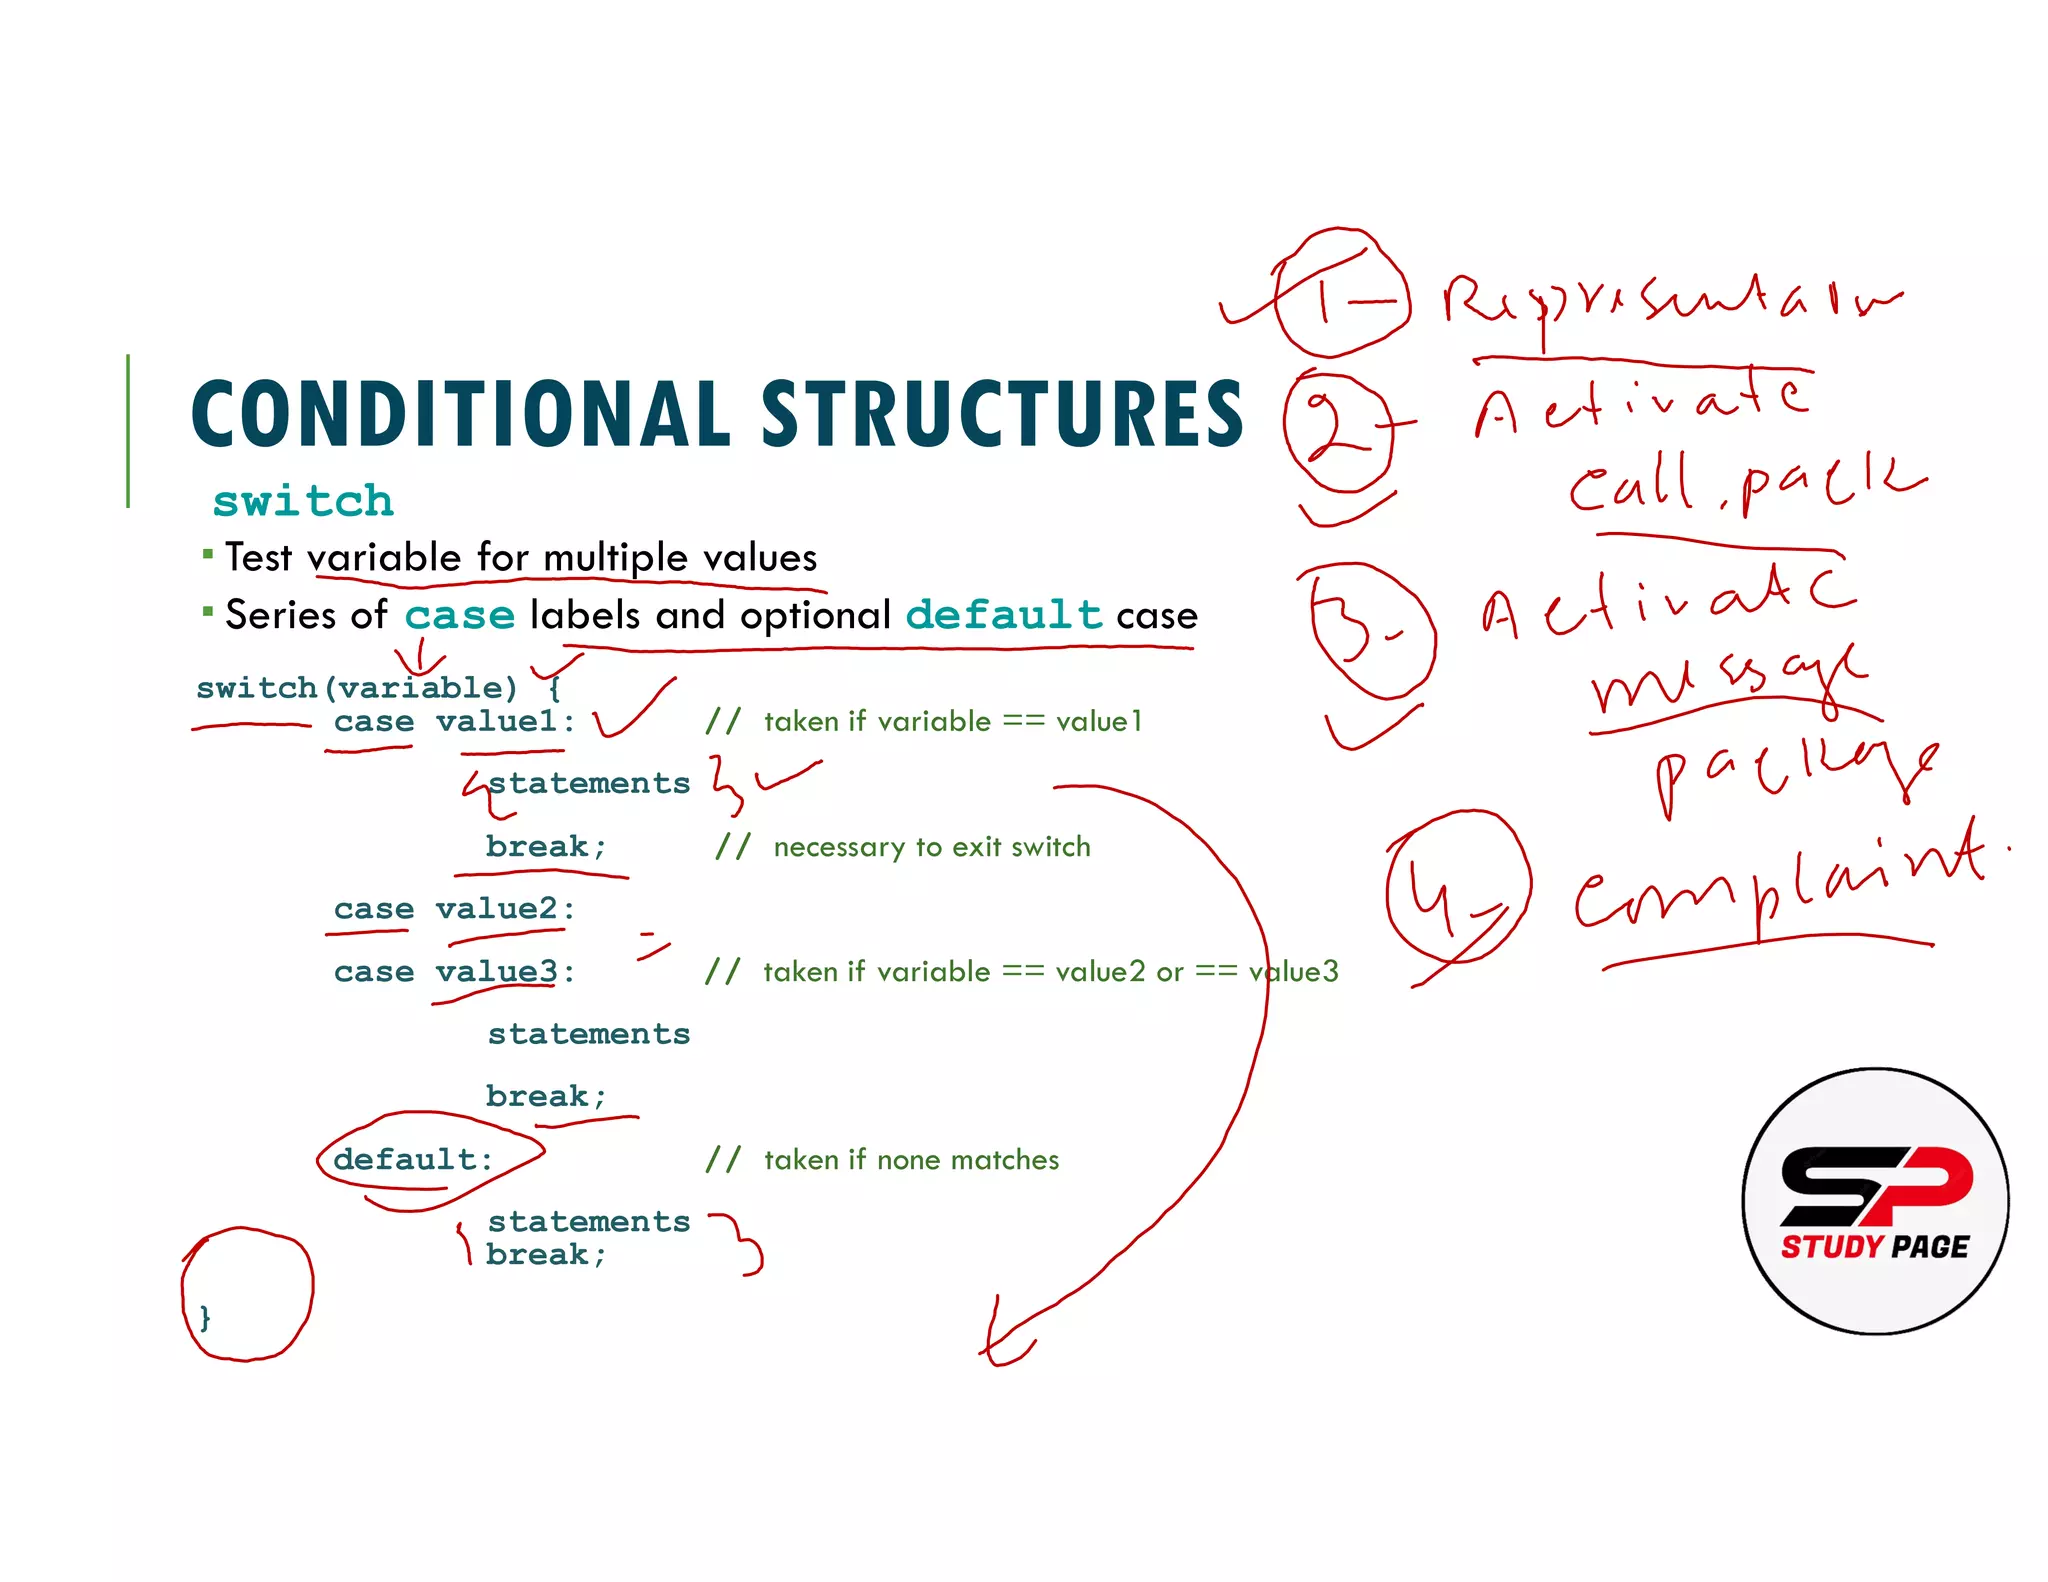 CONDITIONAL STRUCTURES
switch
▪ Test variable for multiple values
▪ Series of case labels and optional default case
switch(variable) {
case value1: // taken if variable == value1
statements
break; // necessary to exit switch
case value2:
case value3: // taken if variable == value2 or == value3
statements
break;
default: // taken if none matches
statements
break;
}
1-
2- Activate
call. pack
3- Activate
message
package
4- Complaint.
SP
STUDY PAGE